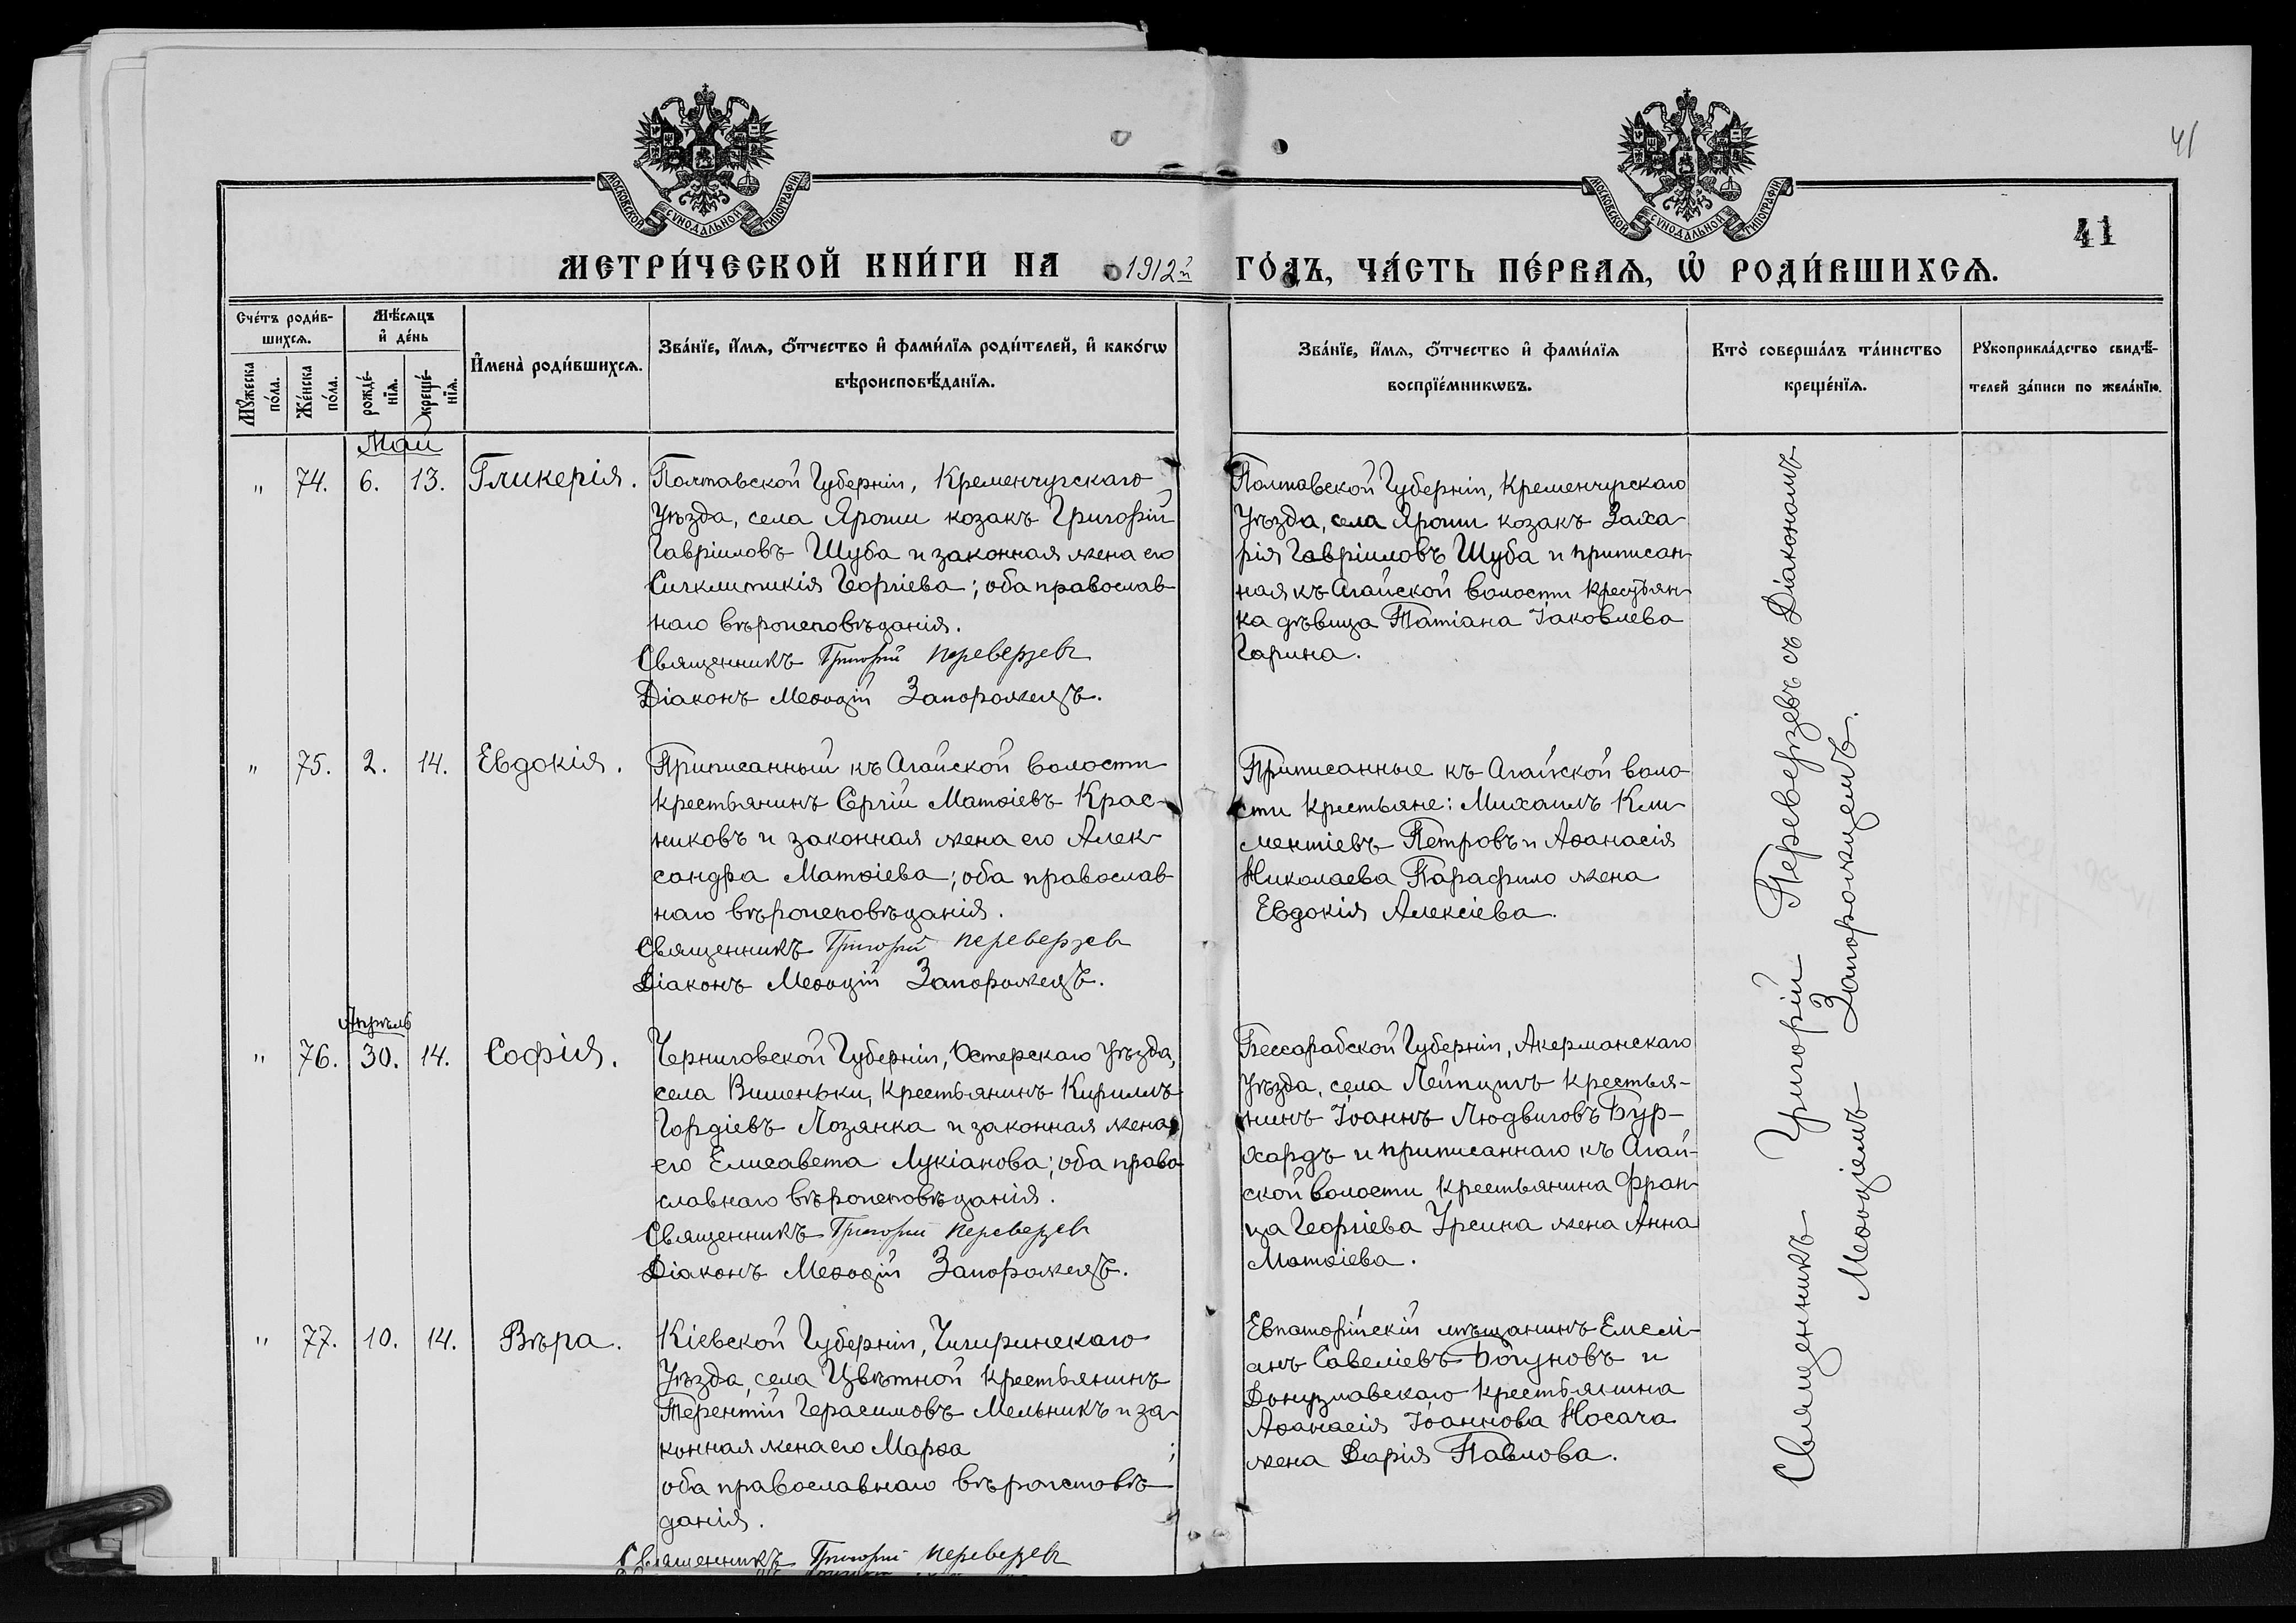 41
МОСКОВСКОЙ СУНОДАЛЬНОЙ ТИПОГРАФІИ
МОСКОВСКОЙ СУНОДАЛЬНОЙ ТИПОГРАФІИ
41
МЕТРИ́ЧЕСКОЙ КНИ́ГИ НА 1912й ГО́ДЪ, ЧА́СТЬ ПЕ́РВАѦ, Ѡ҆ РОДИ́ВШИХСѦ.
Сче́тъ роди́в-
шихсѧ.
Мꙋ́жеска
по́ла.
Же́нска
по́ла.
Мѣ́сѧцъ
и҆ де́нь
рожде́-
нїѧ.
креще́-
нїѧ.
И҆мена̀ роди́вшихсѧ.
Зва́нїе, и҆́мѧ, ѻ҆́тчество и҆ фами́лїѧ роди́телей, и҆ како́гѡ
вѣроисповѣ́данїѧ.
Зва́нїе, и҆́мѧ, ѻ҆́тчество и҆ фами́лїѧ
воспрїе́мникѡвъ.
Кто̀ соверша́лъ та́инство
креще́нїѧ.
Рꙋкоприкла́дство свидѣ́-
телей за́писи по жела́нїю.
Май
" 74. 6. 13. Гликерія.
Полтавской Губерніи, Кременчугскаго
Уѣзда, села Яроши козакъ Григорій
Гавріиловъ Шуба и законная жена его
Синклитикія Георгіева; оба православ
наго вѣроисповѣданія.
Священникъ Григорій Переверзевъ
Діаконъ Меѳодій Запорожецъ.
Полтавской Губерніи, Кременчугскаго
Уѣзда, села Яроши козакъ Заха-
рія Гавріиловъ Шуба и приписан-
ная къ Агайской волости крестьян-
ка дѣвица Татіана Іаковлева
Гарина.
" 75. 2. 14. Евдокія.
Приписанный къ Агайской волости
крестьянинъ Сергій Матѳіевъ Крас-
никовъ и законная жена его Алек-
сандра Матѳіева; оба православ
наго вѣроисповѣданія.
Священникъ Григорій Переверзевъ
Діаконъ Меѳодій Запорожецъ.
Приписанные къ Агайской воло-
сти крестьяне: Михаилъ Кли-
ментіевъ Петровъ и Аѳанасія
Николаева Парафило жена
Евдокія Алексіева.
Апрѣль
" 76. 30. 14. Софія.
Черниговской Губерніи, Остерскаго Уѣзда,
села Вишеньки, крестьянинъ Кириллъ
Гордіевъ Лозянка и законная жена
его Елисавета Лукіанова; оба право-
славнаго вѣроисповѣданія.
Священникъ Григорій Переверзевъ
Діаконъ Меѳодій Запорожецъ.
Бессарабской Губерніи, Акерманскаго
Уѣзда, села Лейпцигъ крестья-
нинъ Іоаннъ Людвиговъ Бур-
хардъ и приписаннаго къ Агай-
ской волости крестьянина Фран-
ца Георгіева жена Анна
Матѳіева.
" 77. 10. 14. Вѣра.
Кіевской Губерніи, Чигиринскаго
Уѣзда, села Цвѣтной крестьянинъ
Терентій Герасимовъ Мельникъ и за-
конная жена его Марѳа ;
оба православнаго вѣроисповѣ-
данія.
Священникъ Григорій Переверзевъ
Евпаторійскій мѣщанинъ Емелі-
анъ Савеліевъ Богуновъ и
Донузлавскаго крестьянина
Аѳанасія Іоаннова Носача
жена Дарія Павлова.
Священникъ Григорій Переверзевъ съ Діакономъ
Меѳодіемъ Запорожцемъ.